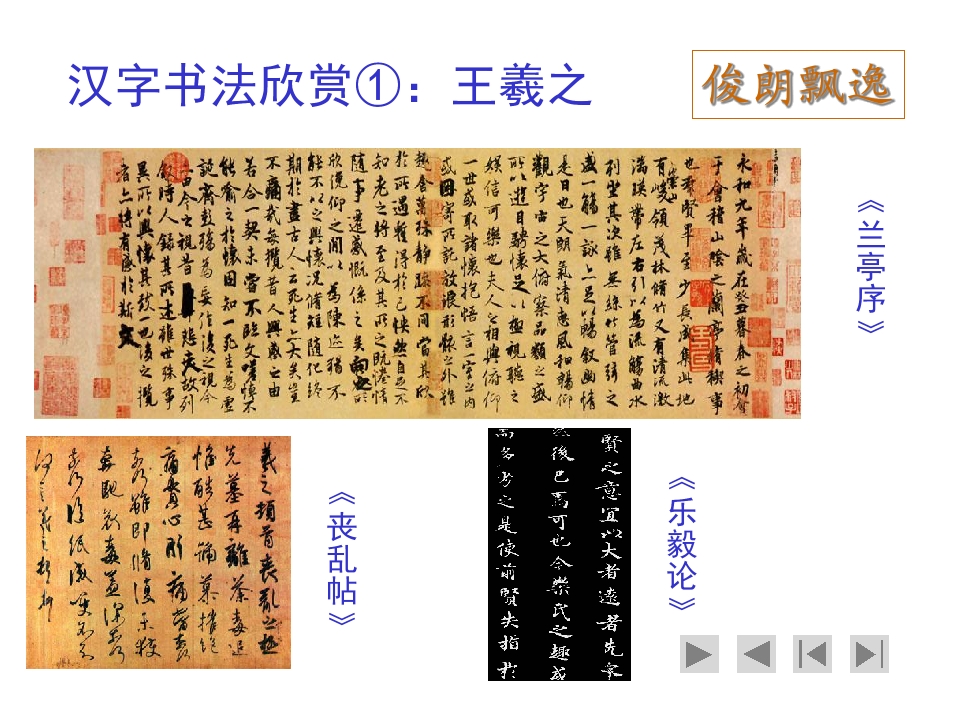 汉字书法欣赏①：王羲之
俊朗飘逸
永和九年歲在癸丑暮春之初會
于會稽山陰之蘭亭脩稧事
也羣賢畢至少長咸集此地
有崇山峻領茂林脩竹又有清流激
湍暎帶左右引以為流觴曲水
列坐其次雖無絲竹管弦之
盛一觴一詠亦足以暢敘幽情
是日也天朗氣清惠風和暢仰
觀宇宙之大俯察品類之盛
所以遊目騁懷足以極視聽之
娛信可樂也夫人之相與俯仰
一世或取諸懷抱悟言一室之內
或因寄所託放浪形骸之外雖
趣舍萬殊靜躁不同當其欣
於所遇蹔得於己怏然自足不
知老之將至及其所之既惓情
隨事遷感慨係之矣向之所
欣俛仰之閒以為陳跡猶不
能不以之興懷況脩短隨化終
期於盡古人云死生亦大矣豈
不痛哉每攬昔人興感之由
若合一契未嘗不臨文嗟悼不
能喻之於懷固知一死生為虛
誕齊彭殤為妄作後之視今
亦由今之視昔悲夫故列
敘時人錄其所述雖世殊事
異所以興懷其致一也後之攬
者亦將有感於斯文
《兰亭序》
羲之頓首喪亂之極
先墓再離荼毒追
惟酷甚號慕摧絕
痛貫心肝痛當奈何
奈何雖即脩復未獲
奔馳哀毒益深奈何
奈何臨紙感哽不知
何言羲之頓首頓首
《丧乱帖》
賢之意宜以大者遠者先衆
然後已焉可也今樂氏之趣或
而多劣之是使前賢失指於
《乐毅论》